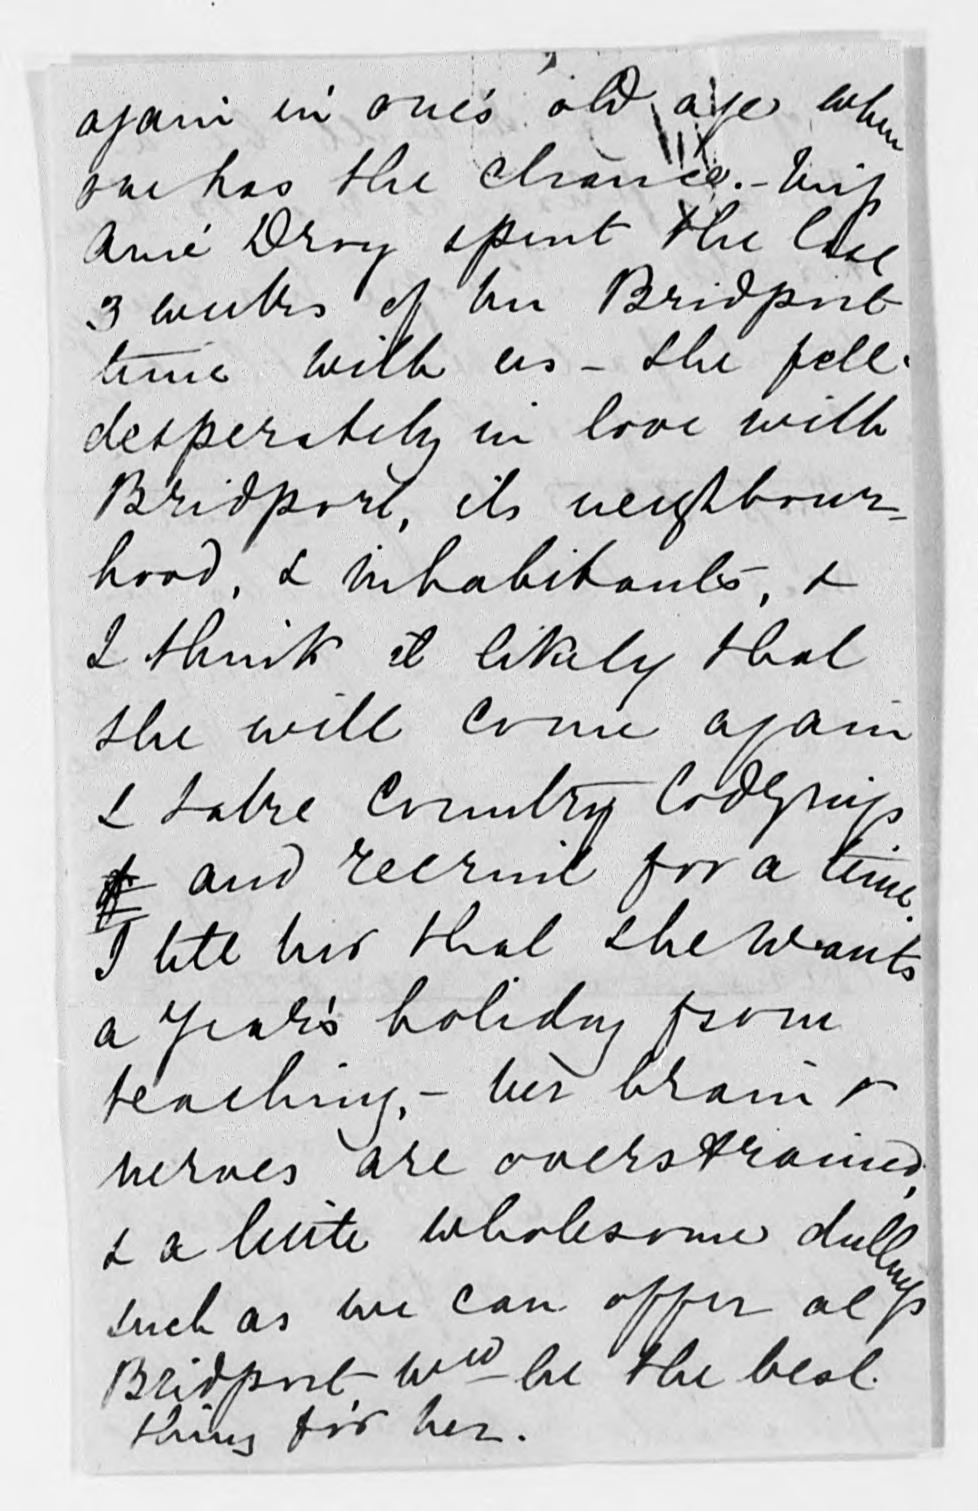 again in one's old age when
one has the chance. - Miss
Amé Drey spent the last
3 weeks of her Bridport
time with us - she fell
desperately in love with
Bridport, its neighbour-
hood, & inhabitants, &
I think it likely that
she will come again
& take country lodgings
and recruit for a time.
I tell her that she wants
a year's holiday from
teaching, - her brain &
nerves are overstrained,
& a little wholesome dullness
such as we can offer at
Bridport wd be the best
thing for her.